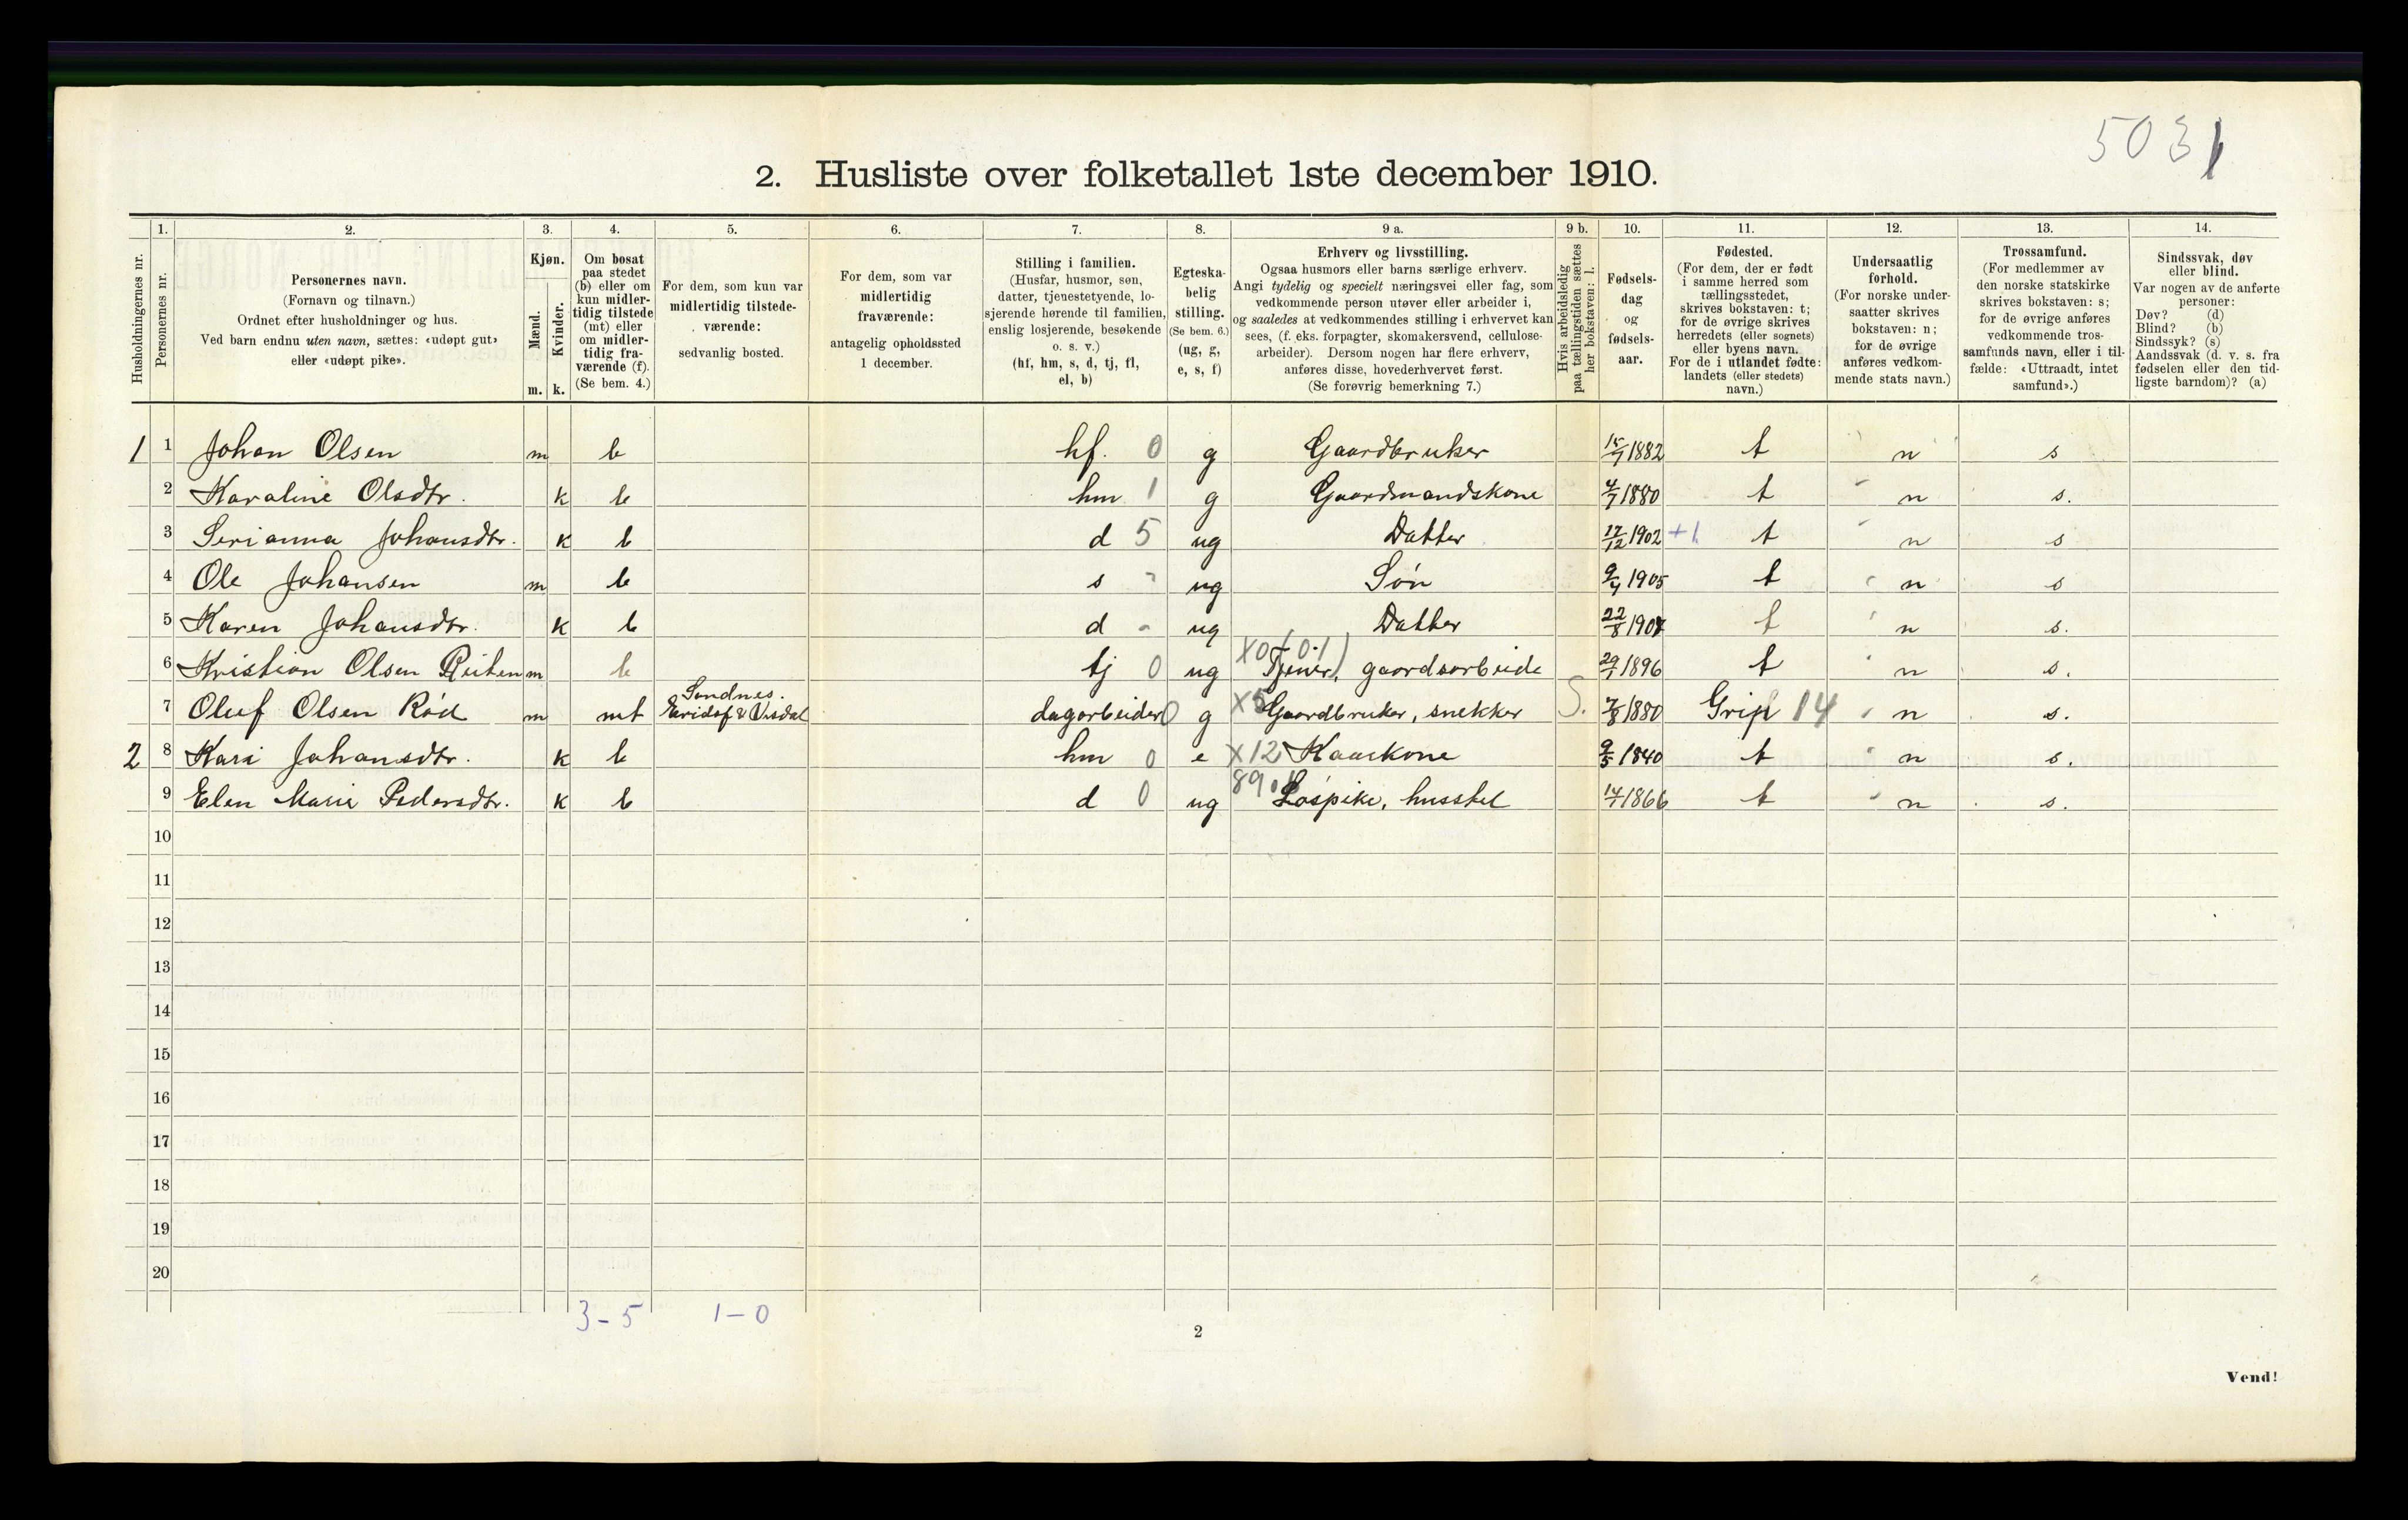 5031
2. Husliste over folketallet 1ste december 1910.
Husholdningernes nr.
1. Personernes nr.
2. Personernes navn.
(Fornavn og tilnavn.)
Ordnet efter husholdninger og hus.
Ved barn endnu uten navn, sættes: «udøpt gut»
eller «udøpt pike».
3. Kjøn.
Mænd. m.
Kvinder. k.
4. Om bosat
paa stedet
(b) eller om
kun midler-
tidig tilstede
(mt) eller
om midler-
tidig fra-
værende (f).
(Se bem. 4.)
5. For dem, som kun var
midlertidig tilstede-
værende:
sedvanlig bosted.
6. For dem, som var
midlertidig
fraværende:
antagelig opholdssted
1 december.
7. Stilling i familien.
(Husfar, husmor, søn,
datter, tjenestetyende, lo-
sjerende hørende til familien,
enslig losjerende, besøkende
o. s. v.)
(hf, hm, s, d, tj, fl,
el, b)
8. Egteska-
belig
stilling.
(Se bem. 6.)
(ug, g,
e, s, f)
9 a. Erhverv og livsstilling.
Ogsaa husmors eller barns særlige erhverv.
Angi tydelig og specielt næringsvei eller fag, som
vedkommende person utøver eller arbeider i,
og saaledes at vedkommendes stilling i erhvervet kan
sees, (f. eks. forpagter, skomakersvend, cellulose-
arbeider). Dersom nogen har flere erhverv,
anføres disse, hovederhvervet først.
(Se forøvrig bemerkning 7.)
9 b. Hvis arbeidsledig
paa tællingstiden sættes
her bokstaven: l.
10. Fødsels-
dag
og
fødsels-
aar.
11. Fødested.
(For dem, der er født
i samme herred som
tællingsstedet,
skrives bokstaven: t;
for de øvrige skrives
herredets (eller sognets)
eller byens navn.
For de i utlandet fødte:
landets (eller stedets)
navn.)
12. Undersaatlig
forhold.
(For norske under-
saatter skrives
bokstaven: n;
for de øvrige
anføres vedkom-
mende stats navn.)
13. Trossamfund.
(For medlemmer av
den norske statskirke
skrives bokstaven: s;
for de øvrige anføres
vedkommende tros-
samfunds navn, eller i til-
fælde: «Uttraadt, intet
samfund».)
14. Sindssvak, døv
eller blind.
Var nogen av de anførte
personer:
Døv? (d)
Blind? (b)
Sindssyk? (s)
Aandssvak (d. v. s. fra
fødselen eller den tid-
ligste barndom)? (a)
1 1 Johan Olsen m b hf. 0 g Gaardbruker 15/7 1882 t n s
2 Karaline Olsdtr. k b hm 1 g Gaardmandskone 4/7 1880 t n s.
3 Serianna Johansdtr. k b d 5 ug Datter 17/12 1902 +1 t n s
4 Ole Johansen m b s - ug Søn 9/4 1905 t n s
5 Karen Johansdtr. k b d - ug Datter 22/8 1907 t n s.
6 Kristian Olsen m b tj 0 ug X0(01) Tjener, gaardsarbeide 29/1 1896 t n s.
7 Oluf Olsen Rød m mt Sandnes. dagarbeider 0 g X5 Gaardbruker, snekker S. 7/8 1880 Grip 14 n s.
2 8 Kari Johansdtr. k b hm 0 e X12 Kaarkone 9/5 1840 t n s.
9 Elen Marie Pedersdtr. k b d 0 ug 890 Løspike, husstel 14/7 1866 t n s.
10
11
12
13
14
15
16
17
18
19
20
3-5 1-0
2
Vend!